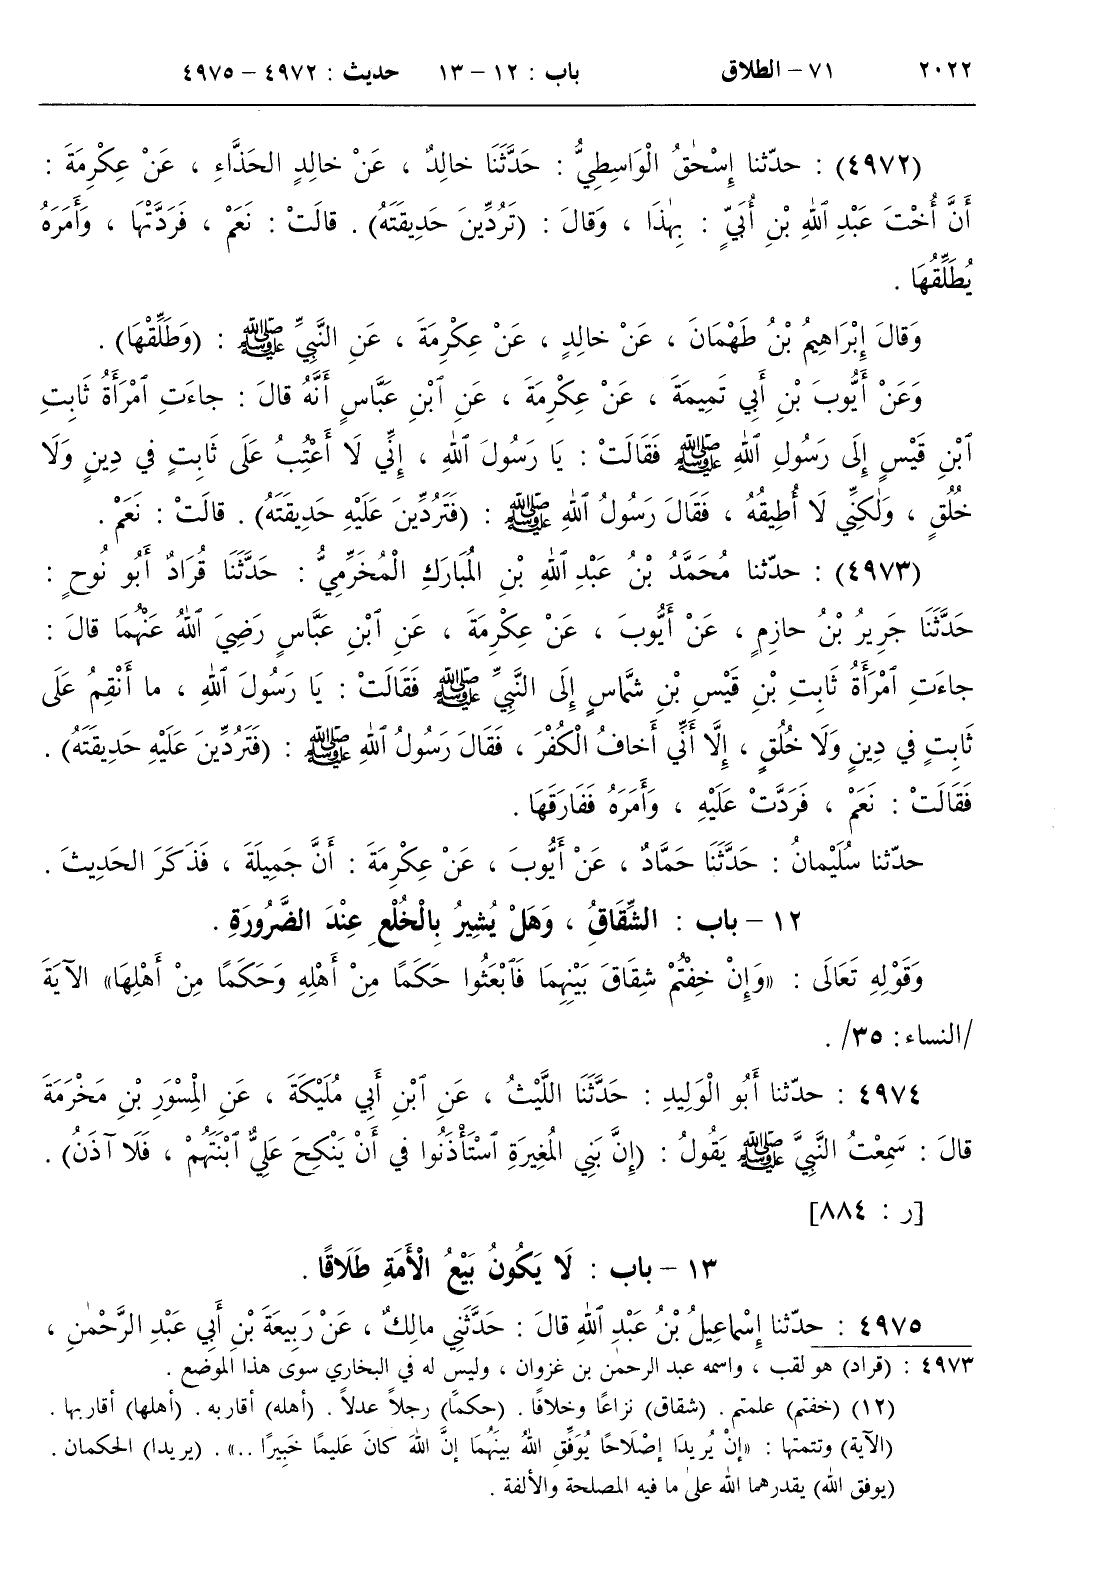 ٢٠٢٢ ٧١ – الطلاق باب : ١٢ – ١٣ حديث : ٤٩٧٢ – ٤٩٧٥
(٤٩٧٢) : حدّثنا إِسْحٰقُ الْوَاسِطِيُّ : حَدَّثَنَا خالِدٌ ، عَنْ خالِدٍ الحَذَّاءِ ، عَنْ عِكْرِمَةَ :
أَنَّ أُخْتَ عَبْدِ ٱللهِ بْنِ أُبَيٍّ : بِهٰذَا ، وَقالَ : (تَرُدِّينَ حَدِيقَتَهُ) . قالَتْ : نَعَمْ ، فَرَدَّتْهَا ، وَأَمَرَهُ
يُطَلِّقُهَا .
وَقالَ إِبْرَاهِيمُ بْنُ طَهْمَانَ ، عَنْ خالِدٍ ، عَنْ عِكْرِمَةَ ، عَنِ النَّبِيِّ ﷺ : (وَطَلِّقْهَا) .
وَعَنْ أَيُّوبَ بْنِ أَبِي تَمِيمَةَ ، عَنْ عِكْرِمَةَ ، عَنِ ٱبْنِ عَبَّاسٍ أَنَّهُ قالَ : جاءَتِ ٱمْرَأَةُ ثَابِتِ
ٱبْنِ قَيْسٍ إِلَى رَسُولِ ٱللهِ ﷺ فَقَالَتْ : يَا رَسُولَ ٱللهِ ، إِنِّي لَا أَعْتِبُ عَلَى ثَابِتٍ في دِينٍ وَلَا
خُلُقٍ ، وَلٰكِنِّي لَا أُطِيقُهُ ، فَقَالَ رَسُولُ ٱللهِ ﷺ : (فَتَرُدِّينَ عَلَيْهِ حَدِيقَتَهُ) . قالَتْ : نَعَمْ .
(٤٩٧٣) : حدّثنا مُحَمَّدُ بْنُ عَبْدِ ٱللهِ بْنِ الْمُبَارَكِ الْمُخَرِّمِيُّ : حَدَّثَنَا قُرَادٌ أَبُو نُوحٍ :
حَدَّثَنَا جَرِيرُ بْنُ حازِمٍ ، عَنْ أَيُّوبَ ، عَنْ عِكْرِمَةَ ، عَنِ ٱبْنِ عَبَّاسٍ رَضِيَ ٱللهُ عَنْهُمَا قالَ :
جاءَتِ ٱمْرَأَةُ ثَابِتِ بْنِ قَيْسِ بْنِ شَمَّاسٍ إِلَى النَّبِيِّ ﷺ فَقَالَتْ : يَا رَسُولَ ٱللهِ ، ما أَنْقِمُ عَلَى
ثَابِتٍ في دِينٍ وَلَا خُلُقٍ ، إِلَّا أَنِّي أَخافُ الْكُفْرَ ، فَقَالَ رَسُولُ ٱللهِ ﷺ : (فَتَرُدِّينَ عَلَيْهِ حَدِيقَتَهُ) .
فَقَالَتْ : نَعَمْ ، فَرَدَّتْ عَلَيْهِ ، وَأَمَرَهُ فَفَارَقَهَا .
حدّثنا سُلَيْمانُ : حَدَّثَنَا حَمَّادٌ ، عَنْ أَيُّوبَ ، عَنْ عِكْرِمَةَ : أَنَّ جَمِيلَةَ ، فَذَكَرَ الحَدِيثَ .
١٢ – باب : الشِّقَاقُ ، وَهَلْ يُشِيرُ بِالْخُلْعِ عِنْدَ الضَّرُورَةِ .
وَقَوْلِهِ تَعَالَى : «وَإِنْ خِفْتُمْ شِقَاقَ بَيْنِهِمَا فَٱبْعَثُوا حَكَمًا مِنْ أَهْلِهِ وَحَكَمًا مِنْ أَهْلِهَا» الآيَةَ
/النساء: ٣٥/ .
٤٩٧٤ : حدّثنا أَبُو الْوَلِيدِ : حَدَّثَنَا اللَّيْثُ ، عَنِ ٱبْنِ أَبِي مُلَيْكَةَ ، عَنِ الْمِسْوَرِ بْنِ مَخْرَمَةَ
قالَ : سَمِعْتُ النَّبِيَّ ﷺ يَقُولُ : (إِنَّ بَنِي الْمُغِيرَةِ ٱسْتَأْذَنُوا في أَنْ يَنْكِحَ عَلِيٌّ ٱبْنَتَهُمْ ، فَلَا آذَنُ) .
[ر : ٨٨٤]
١٣ – باب : لَا يَكُونُ بَيْعُ الْأَمَةِ طَلَاقًا .
٤٩٧٥ : حدّثنا إِسْماعِيلُ بْنُ عَبْدِ ٱللهِ قالَ : حَدَّثَنِي مالِكٌ ، عَنْ رَبِيعَةَ بْنِ أَبِي عَبْدِ الرَّحْمٰنِ ،
٤٩٧٣ : (قراد) هو لقب ، واسمه عبد الرحمن بن غزوان ، وليس له في البخاري سوى هذا الموضع .
(١٢) (خفتم) علمتم . (شقاق) نزاعًا وخلافًا . (حكمًا) رجلاً عدلاً . (أهله) أقاربه . (أهلها) أقاربها .
(الآية) وتتمتها : «إِنْ يُرِيدَا إِصْلَاحًا يُوَفِّقِ اللهُ بَيْنَهُمَا إِنَّ اللهَ كانَ عَلِيمًا خَبِيرًا ..» . (يريدا) الحكمان .
(يوفق الله) يقدرهما الله على ما فيه المصلحة والألفة .